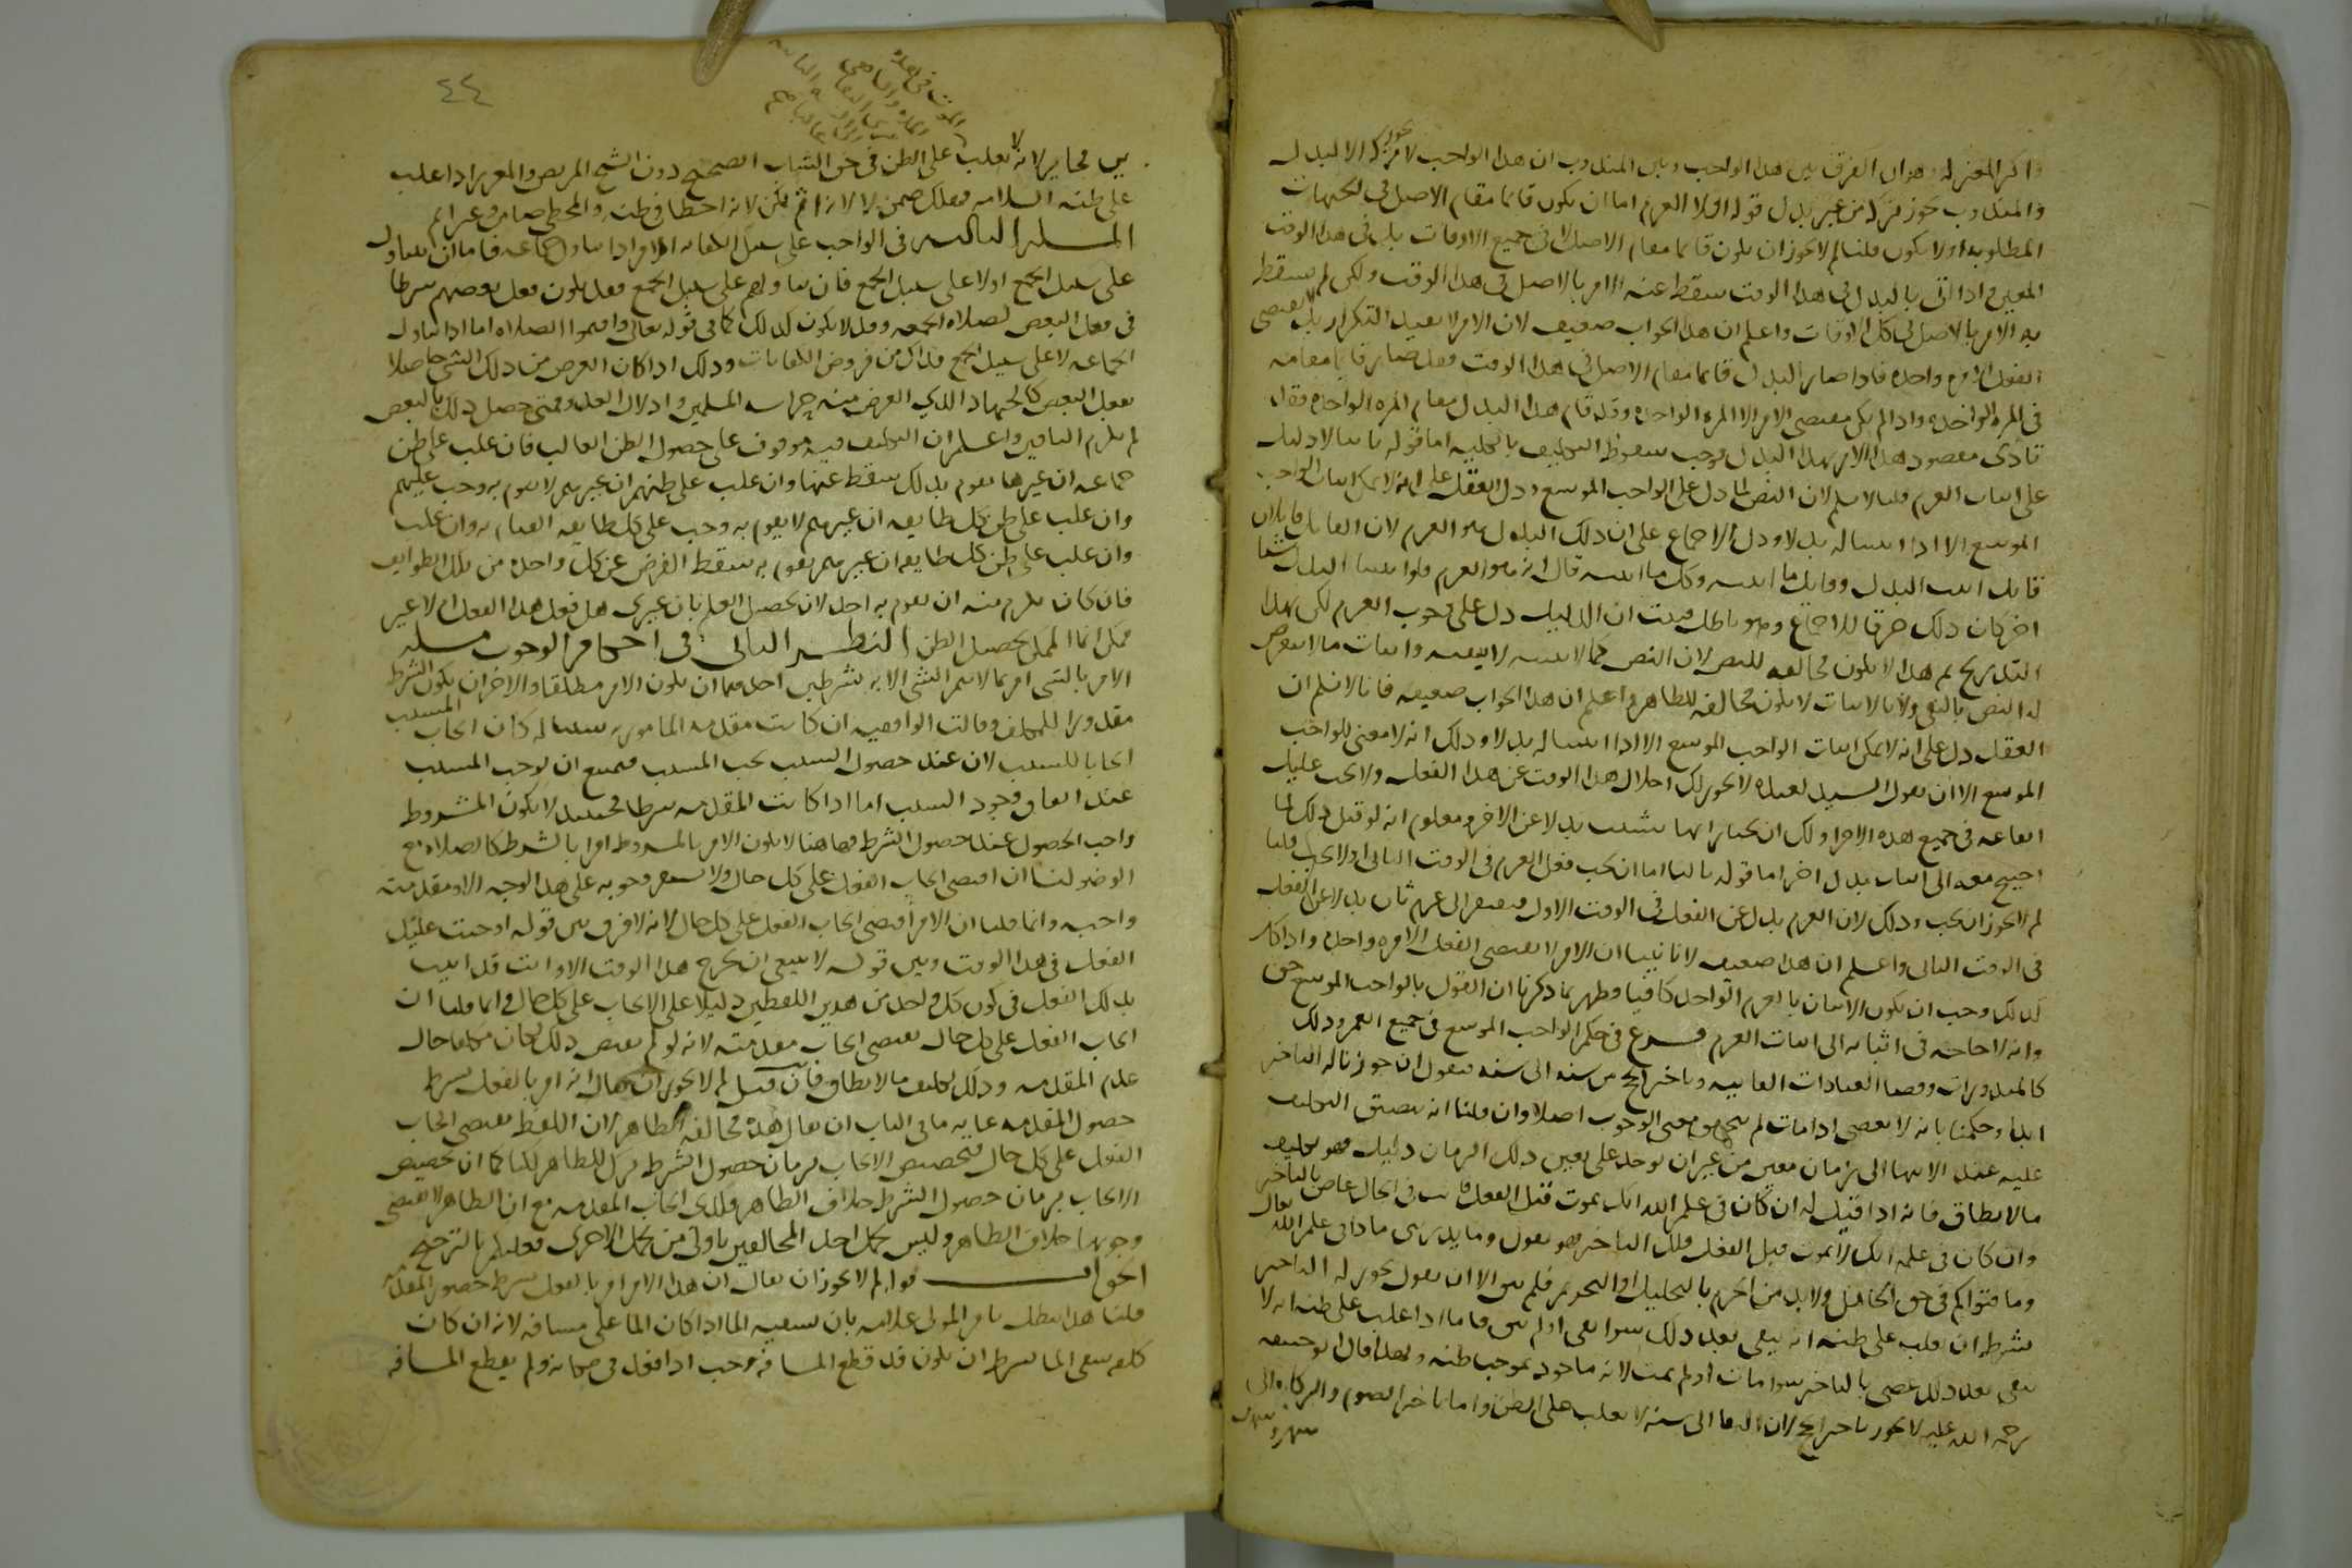 واكثر المعتزله وهو ان الفرق بين هذا الواجب وبين المندوب ان هذا الواجب لا يجوز تركه الا لبدل
والمندوب يجوز تركه من غير بدل قوله اولا العزم اما ان يكون قائما مقام الاصل في الجهات
المطلوبة او لا يكون قلنا لم لا يجوز ان يكون قائما مقام الاصل لا في جميع الاوقات بل في هذا الوقت
المعين فاذا اتى بالبدل في هذا الوقت سقط عنه الامر بالاصل في هذا الوقت ولكن لم يسقط
به الامر بالاصل في كل الاوقات واعلم ان هذا الجواب ضعيف لان الامر لا يفيد التكرار بل لا يقتضي
الفعل الا مرة واحدة فاذا صار البدل قائما مقام الاصل في هذا الوقت فقد صار قائما مقامه
في المرة الواحدة واذا لم يكن مقتضى الامر الا المرة الواحدة وقد قام هذا البدل مقام المرة الواحدة فقد
تأدى مقصود هذا الامر بهذا البدل فوجب سقوط التكليف بالكلية اما قوله ثانيا لا دليل
على اثبات العزم قلنا لا نسلم لان النص لما دل على الواجب الموسع ودل العقل على انه لا يمكن اثبات الواجب
الموسع الا اذا اثبتنا له بدلا ودل الاجماع على ان ذلك البدل هو العزم لان القائل قائلان
قائل اثبت البدل وقائل ما اثبته وكل من اثبته قال انه هو العزم فلو اثبتنا البدل شيئا
اخر كان ذلك خرقا للاجماع وهو باطل فثبت ان الدليل دل على وجوب العزم لكن بهذا
التدريج ثم هذا لا يكون مخالفة للنص لان النص كما لا يثبته لا ينفيه واثبات ما لا يتعرض
له النص بالنفي ولا بالاثبات لا يكون مخالفة للظاهر واعلم ان هذا الجواب ضعيف فانا لا نسلم ان
العقل دل على انه لا يمكن اثبات الواجب الموسع الا اذا اثبتنا له بدلا وذلك انه لا معنى للواجب
الموسع الا ان يقول السيد لعبده لا يجوز لك اخلال هذا الوقت عن هذا الفعل ولا يجب عليك
ايقاعه في جميع هذه الاجزاء ولك ان تختار ايها شئت بدلا عن الاخر ومعلوم انه لو قيل ذلك لما
احتيج معه الى اثبات بدل اخر اما قوله ثالثا اما ان يجب فعل العزم في الوقت الثاني او لا يجب قلنا
لم لا يجوز ان يجب وذلك لان العزم بدل عن الفعل في الوقت الاول فيفتقر الى عزم ثان بدلا عن الفعل
في الوقت الثاني واعلم ان هذا ضعيف لانا بينا ان الامر لا يقتضي الفعل الا مرة واحدة واذا كان
كذلك وجب ان يكون الاتيان بالعزم الواحد كافيا وظهر بما ذكرنا ان القول بالواجب الموسع حق
وانه لا حاجة في اثباته الى اثبات العزم فرع في حكم الواجب الموسع في جميع العمر وذلك
كالمنذورات وقضاء العبادات الفائتة وتاخير الحج من سنة الى سنة فنقول ان جوزنا له التاخير
ابدا وحكمنا بانه لا يعصي اذا مات لم يتحقق معنى الوجوب اصلا وان قلنا انه يتضيق التكليف
عليه عند الانتهاء الى زمان معين من غير ان يوجد على تعيين ذلك الزمان دليل فهو تكليف
ما لا يطاق فانه اذا قيل له ان كان في علم الله انك تموت قبل الفعل فانت في الحال عاص بالتاخير
وان كان في علمه انك لا تموت قبل الفعل فلك التاخير فهو يقول وما يدريني ماذا في علم الله تعالى
وما فتواكم في حق الجاهل ولا بد من الجزم بالتحليل او التحريم فلم يبق الا ان نقول يجوز له التاخير
بشرط ان يغلب على ظنه انه يبقى بعد ذلك سواء بقي او لم يبق فاما اذا غلب على ظنه انه لا
يبقى بعد ذلك عصى بالتاخير سواء مات او لم يمت لانه ماخوذ بموجب ظنه ولهذا قال ابو حنيفة
رحمة الله عليه لا يجوز تاخير الحج لان البقاء الى سنة لا يغلب على الظن واما تاخير الصوم والزكاة الى
شهر وشهرين
٤٤
فجائز لانه لا يغلب على الظن في حق الشاب الصحيح دون الشيخ المريض والمعزر اذا غلب
على ظنه السلامة فهلك ضمن لا لانه اثم لكن لانه اخطا في ظنه والمخطئ ضامن غير اثم
المسألة الثالثة في الواجب على سبيل الكفاية الامر اذا تناول جماعة فاما ان يتناول
على سبيل الجمع او لا على سبيل الجمع فان تناولهم على سبيل الجمع فقد يكون فعل بعضهم شرطا
في فعل البعض لصلاة الجمعة وقد لا يكون كذلك كما في قوله تعالى واقيموا الصلاة اما اذا تناول
الجماعة لا على سبيل الجمع فذاك من فروض الكفايات وذلك اذا كان الغرض من ذلك الشيء حاصلا
بفعل البعض كالجهاد الذي الغرض منه حراسة المسلمين واذلال العدو فمتى حصل ذلك بالبعض
لم يلزم الباقين واعلم ان التكليف فيه موقوف على حصول الظن الغالب فان غلب على ظن
جماعة ان غيرها يقوم بذلك سقط عنها وان غلب على ظنهم ان غيرهم لا يقوم به وجب عليهم
وان غلب على ظن كل طايفة ان غيرهم لا يقوم به وجب على كل طايفة القيام به وان غلب
وان غلب على ظن كل طايفة ان غيرهم يقوم به سقط الفرض عن كل واحدة من تلك الطوايف
فان كان يلزم منه ان يقوم به احد لان تحصيل العلم بان غيري هل فعل هذا الفعل ام لا غير
ممكن انما الممكن تحصيل الظن النظر الثاني في احكام الوجوب مسلة
الامر بالشيء امر بما لا يتم الشيء الا به بشرطين احدهما ان يكون الامر مطلقا والاخر ان يكون الشرط
مقدورا للمكلف وقالت الواقفية ان كانت مقدمة المامور به سببا له كان ايجاب المسبب
ايجابا للسبب لان عند حصول السبب يجب المسبب فيمتنع ان يوجب المسبب
عند اتفاق وجود السبب اما اذا كانت المقدمة شرطا فحينئذ لا يكون المشروط
واجب الحصول عند حصول الشرط فهاهنا لا يكون الامر بالمشروط امرا بالشرط كالصلاة مع
الوضو لنا ان اقتضى ايجاب الفعل على كل حال ولا يستقر وجوبه على هذا الوجه الا ومقدمته
واجبة وانما قلنا ان الامر اقتضى ايجاب الفعل على كل حال لانه لا فرق بين قوله اوجبت عليك
الفعل في هذا الوقت وبين قوله لا ينبغي ان يخرج هذا الوقت الا وانت قد اتيت
بذلك الفعل في كون كل واحد من هذين اللفظين دليلا على الايجاب على كل حال وانما قلنا ان
ايجاب الفعل على كل حال يقتضي ايجاب مقدمته لانه لو لم يقتض ذلك لكان مكلفا حال
عدم المقدمة وذلك تكليف ما لا يطاق فان قيل لم لا يجوز ان يقال انه امر بالفعل بشرط
حصول المقدمة غاية ما في الباب ان يقال هذه مخالفة الظاهر لان اللفظ يقتضي ايجاب
الفعل على كل حال فتخصيص الايجاب بزمان حصول الشرط ترك للظاهر لكنا كما ان تخصيص
الايجاب بزمان حصول الشرط خلاف الظاهر فكذى ايجاب المقدمة مع ان الظاهر لا يقتضي
وجوبها خلاف الظاهر وليس تحمل احد المخالفين باولى من تحمل الاخرى فعليكم بالترجيح
الجواب قوله لم لا يجوز ان يقال ان هذا الامر امر بالفعل بشرط حصول المقدمة
قلنا هذا يبطل بامر المولى غلامه بان يسقيه الما اذا كان الما على مسافة لانه ان كان
كلفه سقي الما بشرط ان يكون قد قطع المسافة وجب اذا قعد في مكانه ولم يقطع المسافة